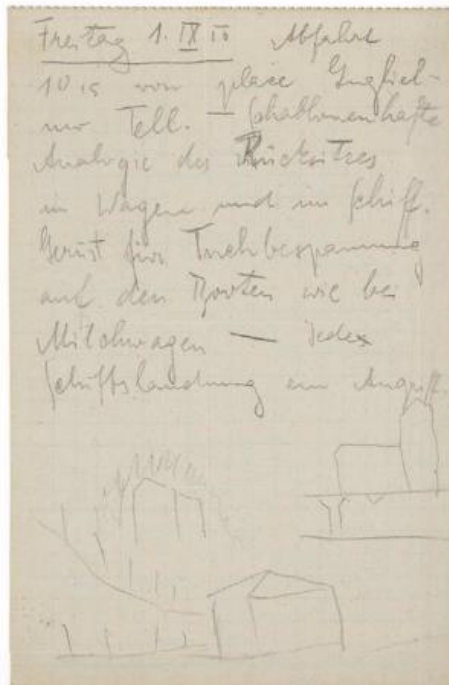 Freitag 1. IX 11 Abfahrt
10 15 von place Gugliel-
mo Tell. — Schablonenhafte
Analogie des Rücksitzes
im Wagen und im Schiff.
Gerüst für Tuchbespannung
auf den Booten wie bei
Milchwagen — Jede
Schiffslandung ein Angriff.